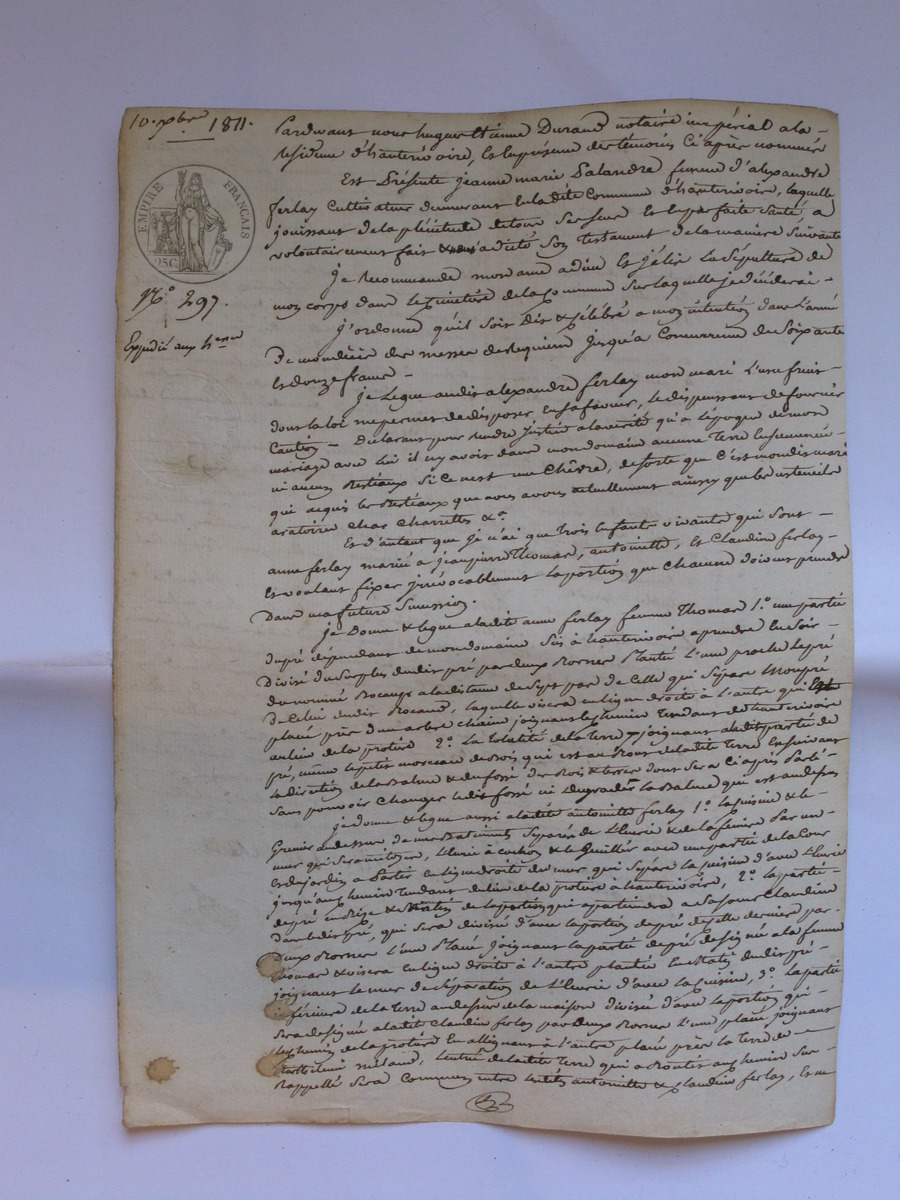 10. xbre 1811.
EMPIRE FRANÇAIS
25 C.
N.° 297.
Expédié aux h
Pardevant nous hugues Etienne Durand notaire impérial a la
résidence d'hauterivoire, et en présence des témoins ci après nommés
Est Présente jeanne marie Palandre femme d'alexandre
ferlay cultivateur demeurant en la dite Commune d'hauterivoire, laquelle
jouissant de la plénitude de tous ses sens et en parfaite santé, a
volontairement fait & dicté son testament de la manière suivante
je recommande mon ame a dieu et j'élis la sépulture de
mon corps dans le cimetière de la commune sur laquelle je décéderai
j'ordonne qu'il soit dit & célébré a mon intention dans l'année
de mon décès des messes de requiem jusqu'a concurrence de soixante
et douze francs
je Legue audit alexandre ferlay mon mari l'usufruit
dont la loi me permet de disposer en sa faveur, le dispensant de fournir
Caution. Déclarant pour rendre justice a la verité qu'a l'époque de mon
mariage avec lui il n'y avoit dans mon domaine aucune terre ensemencée
ni aucuns Bestiaux si ce n'est une chèvre, de sorte que c'est mondit mari
qui a acquis les Bestiaux que nous avons actuellement aussy que les ustenciles
aratoires chars charrettes &.a
Et d'autant que je n'ai que trois enfants vivants qui sont
anne ferlay mariée à jean pierre Thomas, antoinette, et Claudine ferlay
et voulant fixer irrévocablement la portion que chacune doivent prendre
dans ma future succession.
je Donne & legue a la dite anne ferlay femme Thomas 1.° une partie
du pré dépendant de mon domaine sis à hauterivoire a prendre
divisé du surplus dudit pré par deux Bornes Plantée l'une proche le pré
du nommé a la distance de sept pas de celle qui sépare mon pré
de celui dudit, laquelle visera en ligne droite à l'autre qui
placée près d'un arbre chain joignant le chemin tendant de hauterivoire
au lieu de la 2.° La totalité de la terre joignant ladite partie de
pré, même le petit morceau de Bois qui est au de la dite terre en suivant
la direction de la Balme & du fossé des Bois & terres dont sera ci après parlé
sans pouvoir changer ledit fossé ni dégrader la Balme qui est au dessus
je donne & legue aussi a la dite antoinette ferlay 1.° la cuisine & le
Grenier au dessus de mes Batiments séparés de l'Ecurie & de la fenière par un
mur qui sera mitoyen, l'Ecurie à cochon & le avec une partie de la Cour
et du jardin a partir en ligne droite du mur qui sépare la cuisine d'avec l'Ecurie
jusqu'au chemin tendant du lieu de la a hauterivoire, 2.° la partie
de pré en Bize & Matin de la portion qui appartiendra a sa sœur Claudine
dans ledit pré, qui sera divisé d'avec la portion de pré de cette dernière par
deux Bornes l'une placée joignant la partie de pré designée a la femme
Thomas & visera en ligne droite à l'autre plantée en Matin dudit pré
joignant le mur de séparation de l'Ecurie d'avec la cuisine, 3.° la partie
inférieure de la terre au dessus de la maison divisée d'avec la portion qui
sera designée a la dite Claudine ferlay par deux Bornes l'une placée joignant
le chemin de la En allignant à l'autre placée près la terre de
Barthelemi, l'entrée de la dite terre qui aux chemin sus
Rappellé sera commune entre lesdites antoinette & Claudine ferlay, et